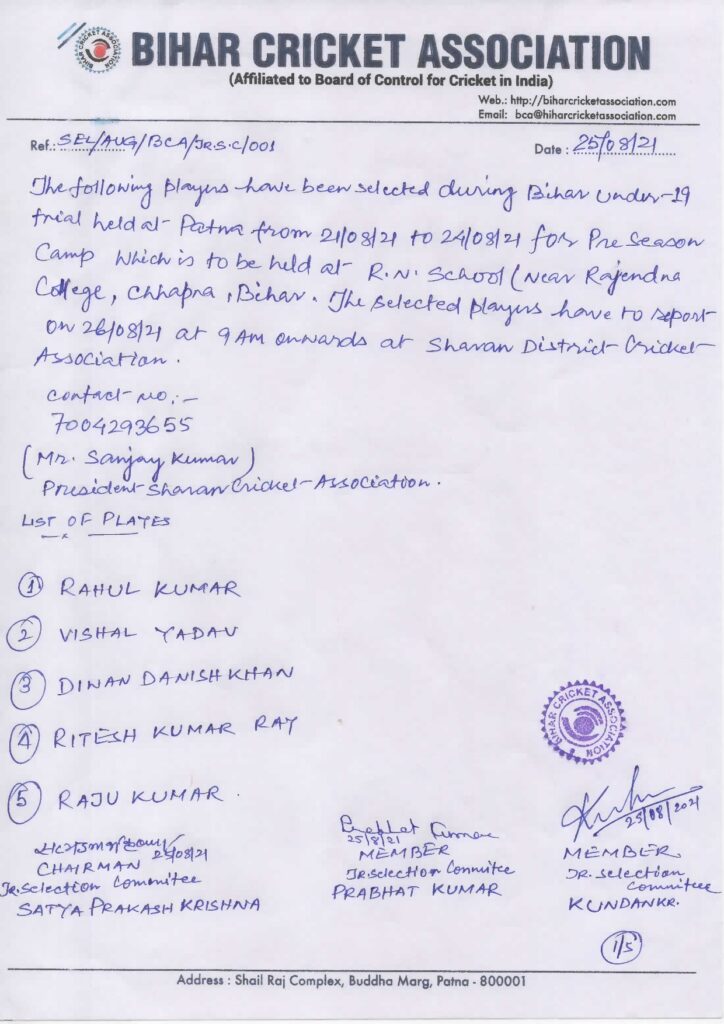 BIHAR CRICKET ASSOCIATION
BIHAR CRICKET ASSOCIATION
(Affiliated to Board of Control for Cricket in India)
Web.: http://biharcricketassociation.com
Email: bca@biharcricketassociation.com
Ref.: SEL/AUG/BCA/JR.S.C/001
Date : 25/08/21
The following players have been selected during Bihar under-19
trial held at Patna from 21/08/21 to 24/08/21 for Pre Season
Camp which is to be held at R.N. School (Near Rajendra
College, Chhapra, Bihar. The selected players have to report
on 26/08/21 at 9 Am onwards at Sharan District Cricket
Association.
Contact No:-
7004293655
(Mr. Sanjay Kumar)
President Sharan Cricket Association.
LIST OF PLAYES
1 RAHUL KUMAR
2 VISHAL YADAV
3 DINAN DANISH KHAN
4 RITESH KUMAR RAY
5 RAJU KUMAR.
BIHAR CRICKET ASSOCIATION
25/08/21
CHAIRMAN
Jr. Selection Committee
SATYA PRAKASH KRISHNA
Prabhat Kumar
25/8/21
MEMBER
Jr Selection Committee
PRABHAT KUMAR
25/08/2021
MEMBER
JR. Selection
Committee
KUNDAN KR.
1/5
Address : Shail Raj Complex, Buddha Marg, Patna - 800001